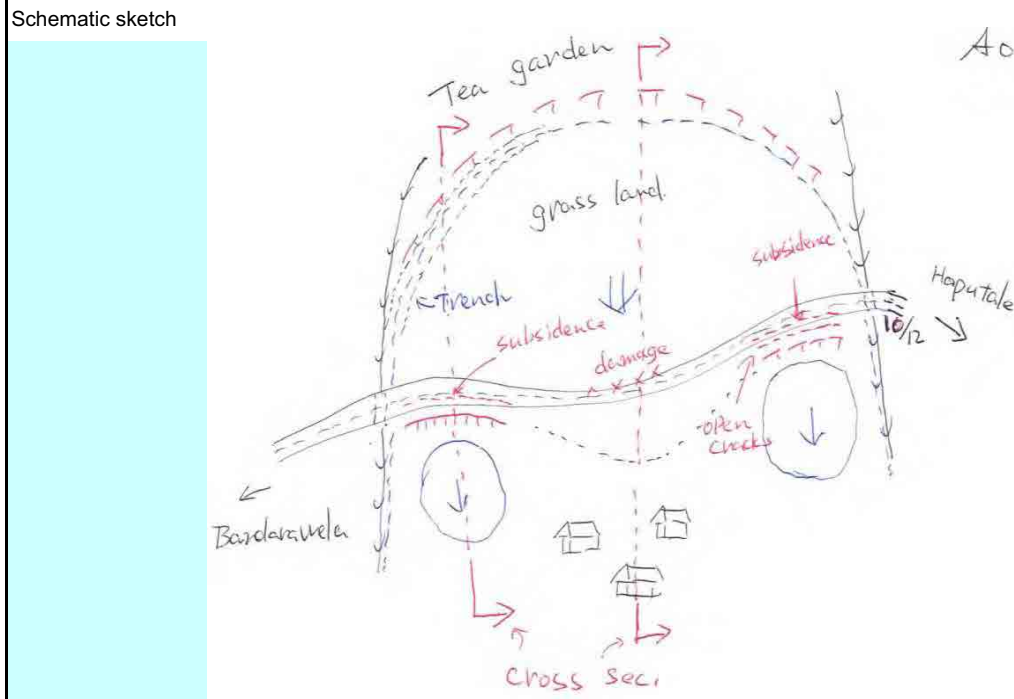 Schematic sketch
Ao
Tea garden
grass land.
subsidence
Haputale
Trench
10/12
subsidence
damage
open
cracks
Bandarawela
cross sec.